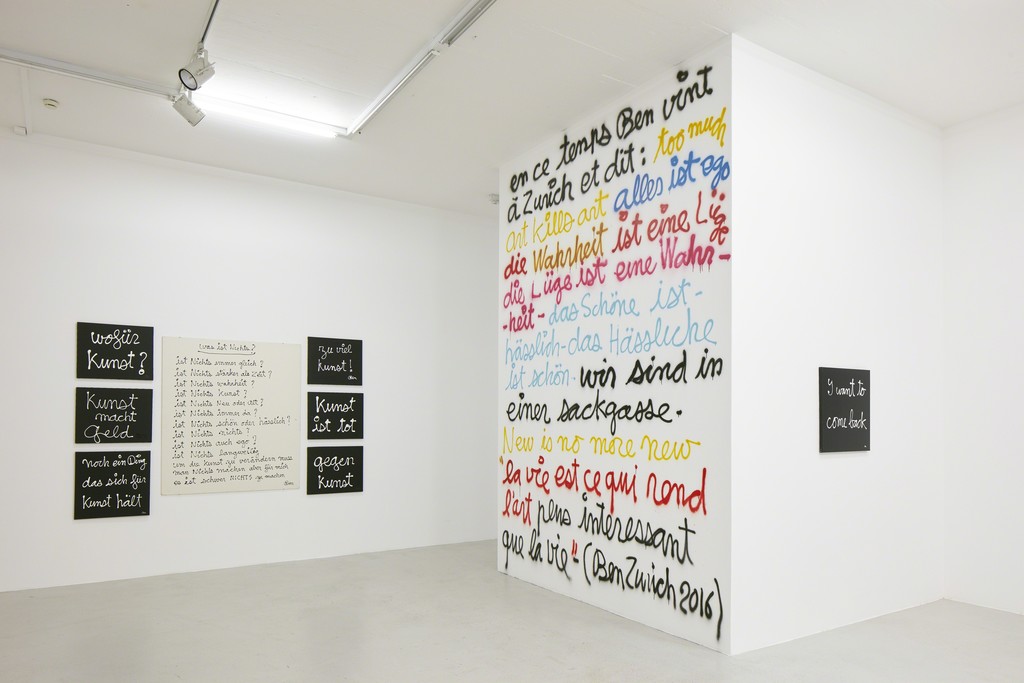 wofür
Kunst?
Kunst
macht
Geld
noch ein Ding
das sich für
Kunst hält
was ist Nichts?
ist Nichts immer gleich?
ist Nichts stärker als Zeit?
ist Nichts Wahrheit?
ist Nichts Kunst?
ist Nichts Neu oder Alt?
ist Nichts immer da?
ist Nichts schön oder hässlich?
ist Nichts nichts?
ist Nichts auch ego?
ist Nichts langweilig
um die Kunst zu verändern muss
man Nichts machen aber für mich
es ist schwer NICHTS zu machen
Ben
zu viel
Kunst!
Ben
Kunst
ist tot
gegen
Kunst
en ce temps Ben vint
à Zurich et dit: too much
art kills art alles ist ego
die Wahrheit ist eine Lüge
die Lüge ist eine Wahr-
-heit- das Schöne ist-
hässlich-das Hässliche
ist schön. wir sind in
einer sackgasse.
New is no more new
"la vie est ce qui rend
l'art pens interessant
que la vie"-(Ben Zurich 2016)
I want to
come back